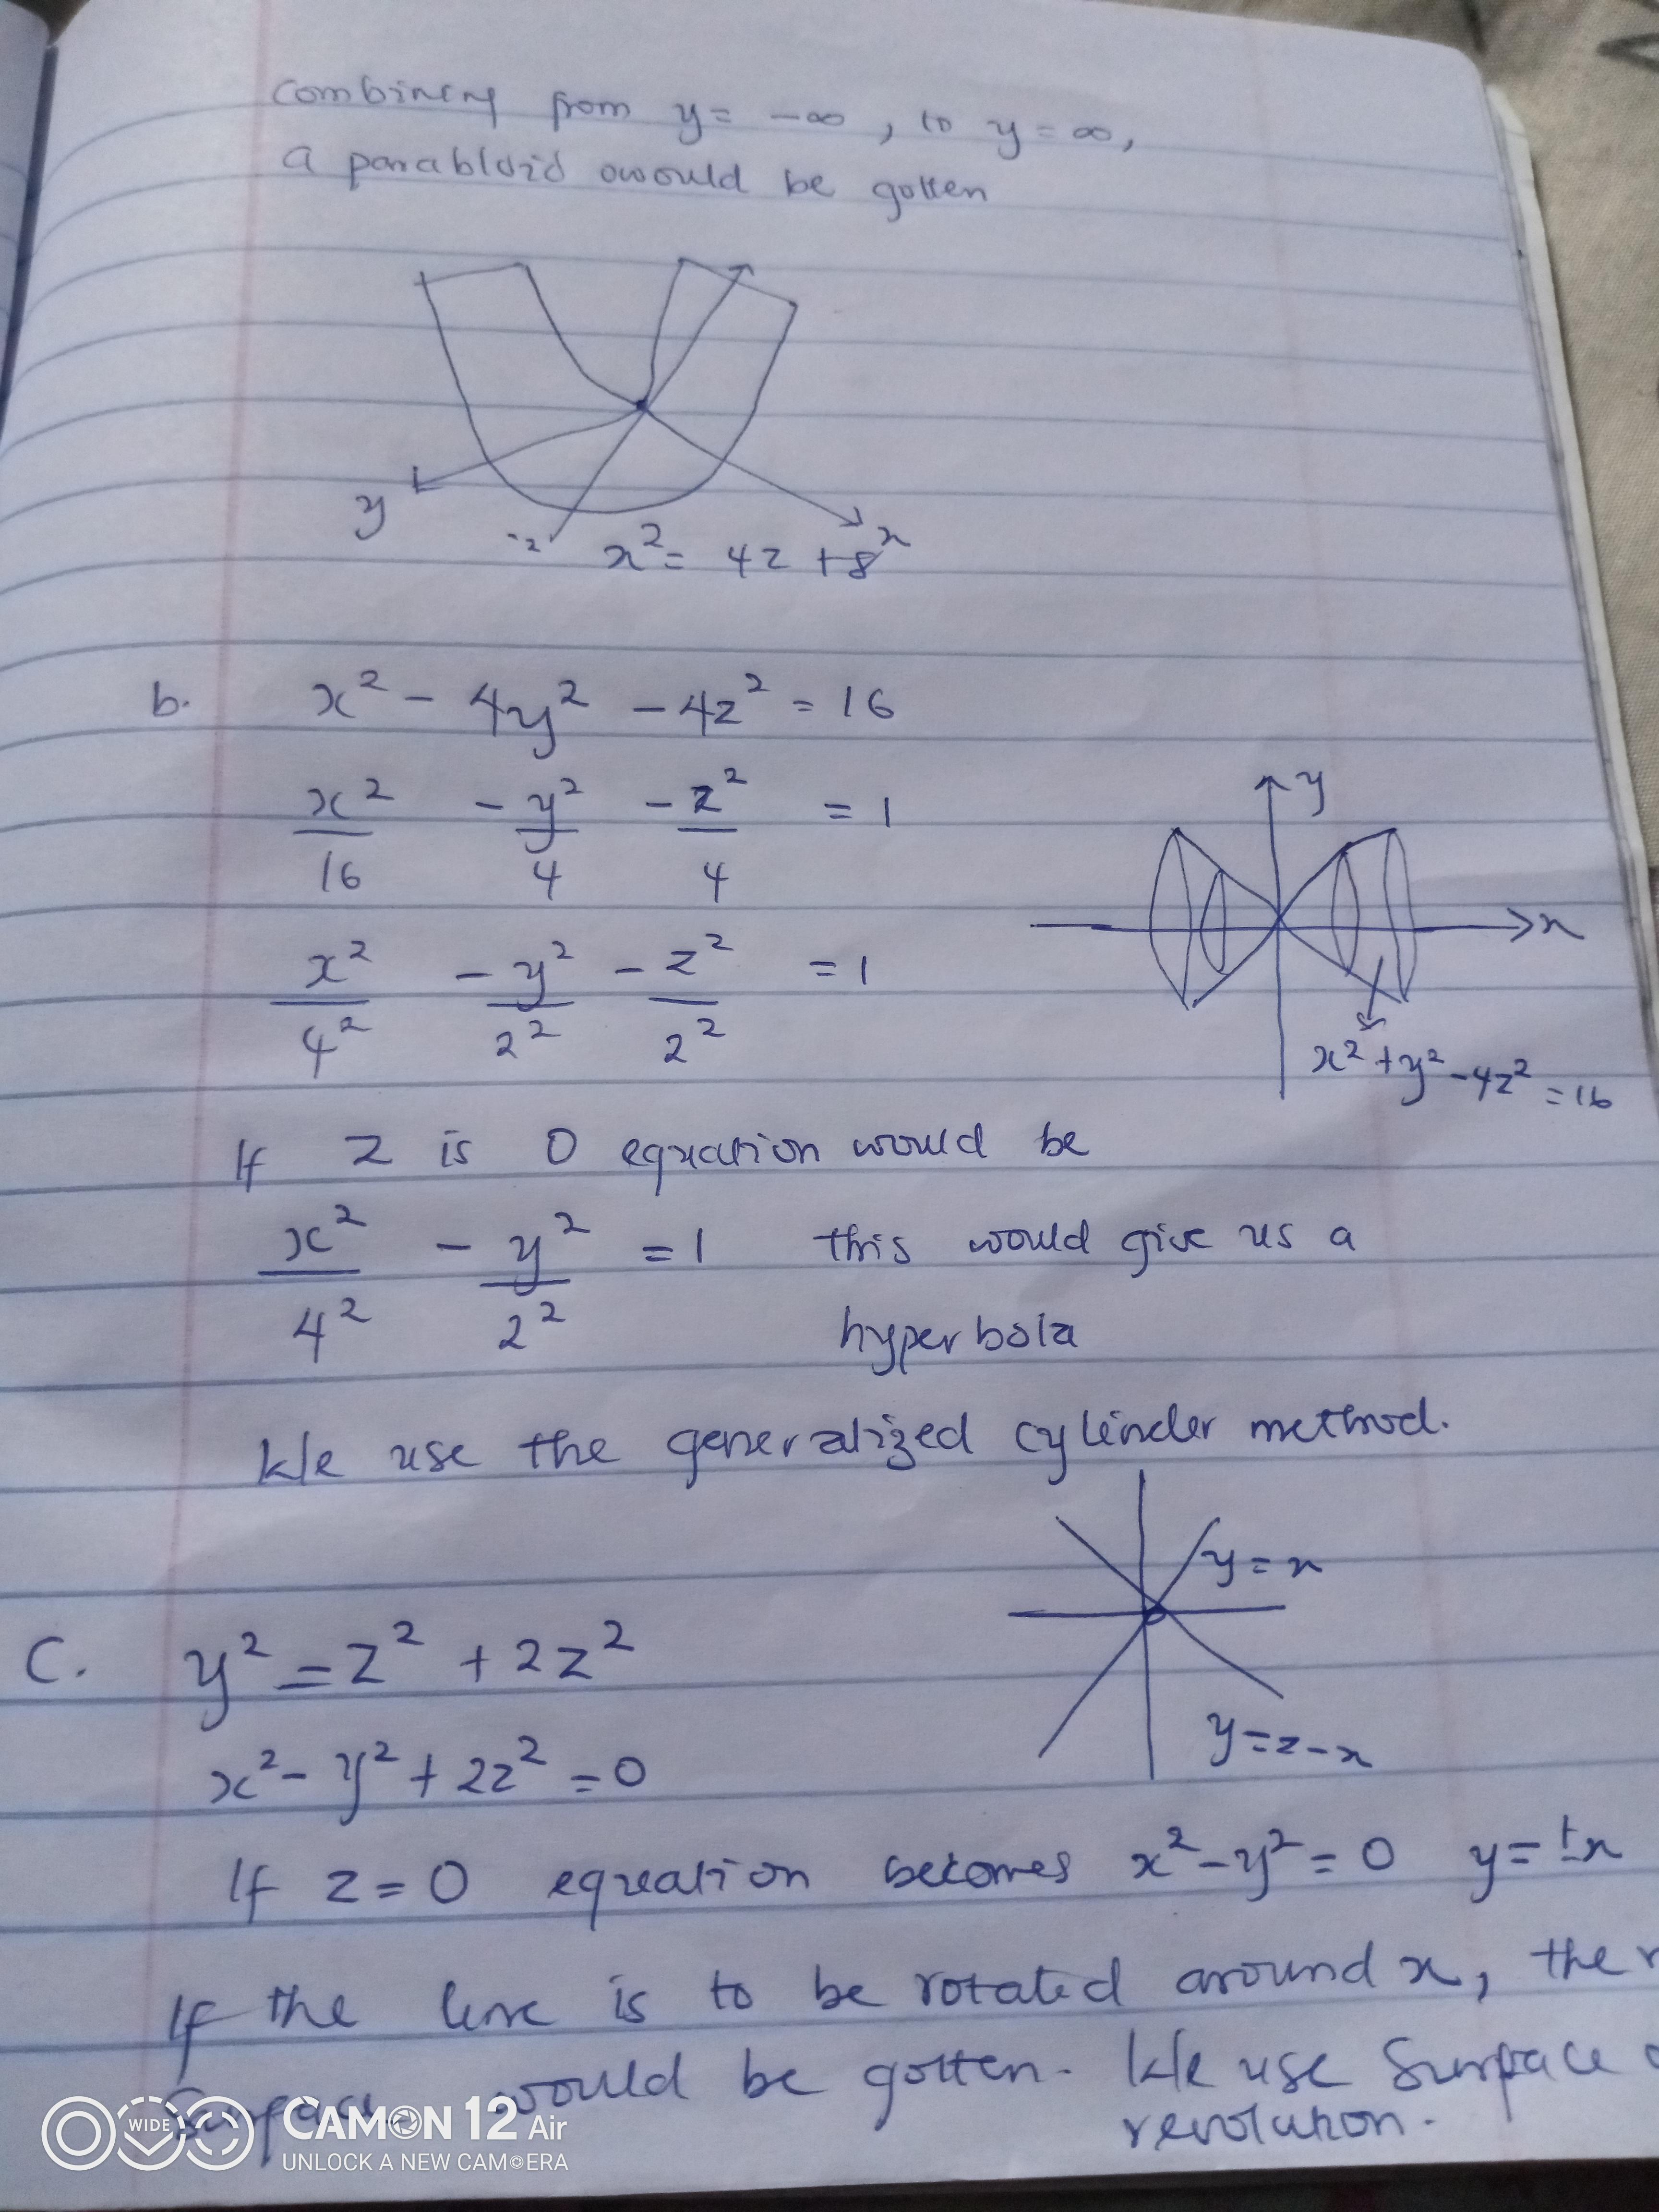 combining from y = -∞, to y = ∞,
a parabloid owould be gotten
y
-2
x
x² = 4z + 8
b. x² - 4y² - 4z² = 16
x²/16 - y²/4 - z²/4 = 1
y
x
x²/4² - y²/2² - z²/2² = 1
x² + y² - 4z² = 16
If z is 0 equation would be
x²/4² - y²/2² = 1 this would give us a
hyperbola
We use the generalized cylinder method.
y = x
C. y² = z² + 2z²
y = z - x
x² - y² + 2z² = 0
If z = 0 equation becomes x² - y² = 0 y = ±x
If the line is to be rotated around x, the
surface would be gotten. We use Surface
revolution.
WIDE
CAMON 12 Air
UNLOCK A NEW CAMERA